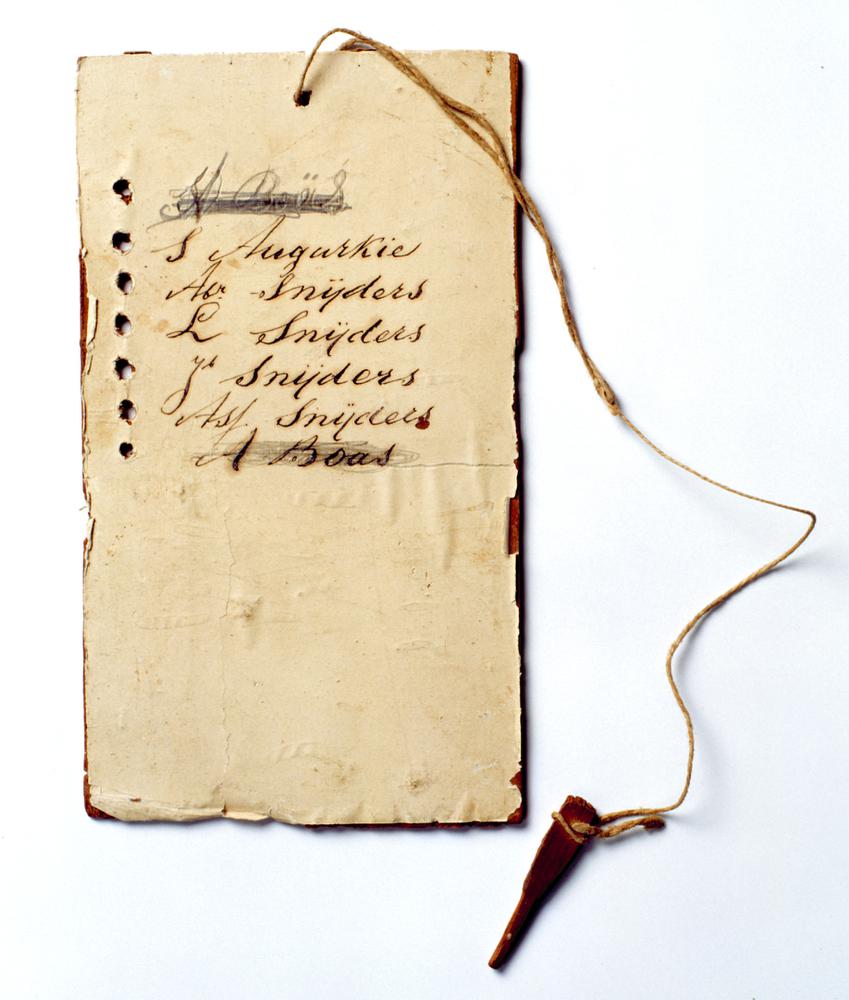 A Boas
S Augurkie
Abr. Snijders
L Snijders
Js Snijders
Ass. Snijders
A Boas